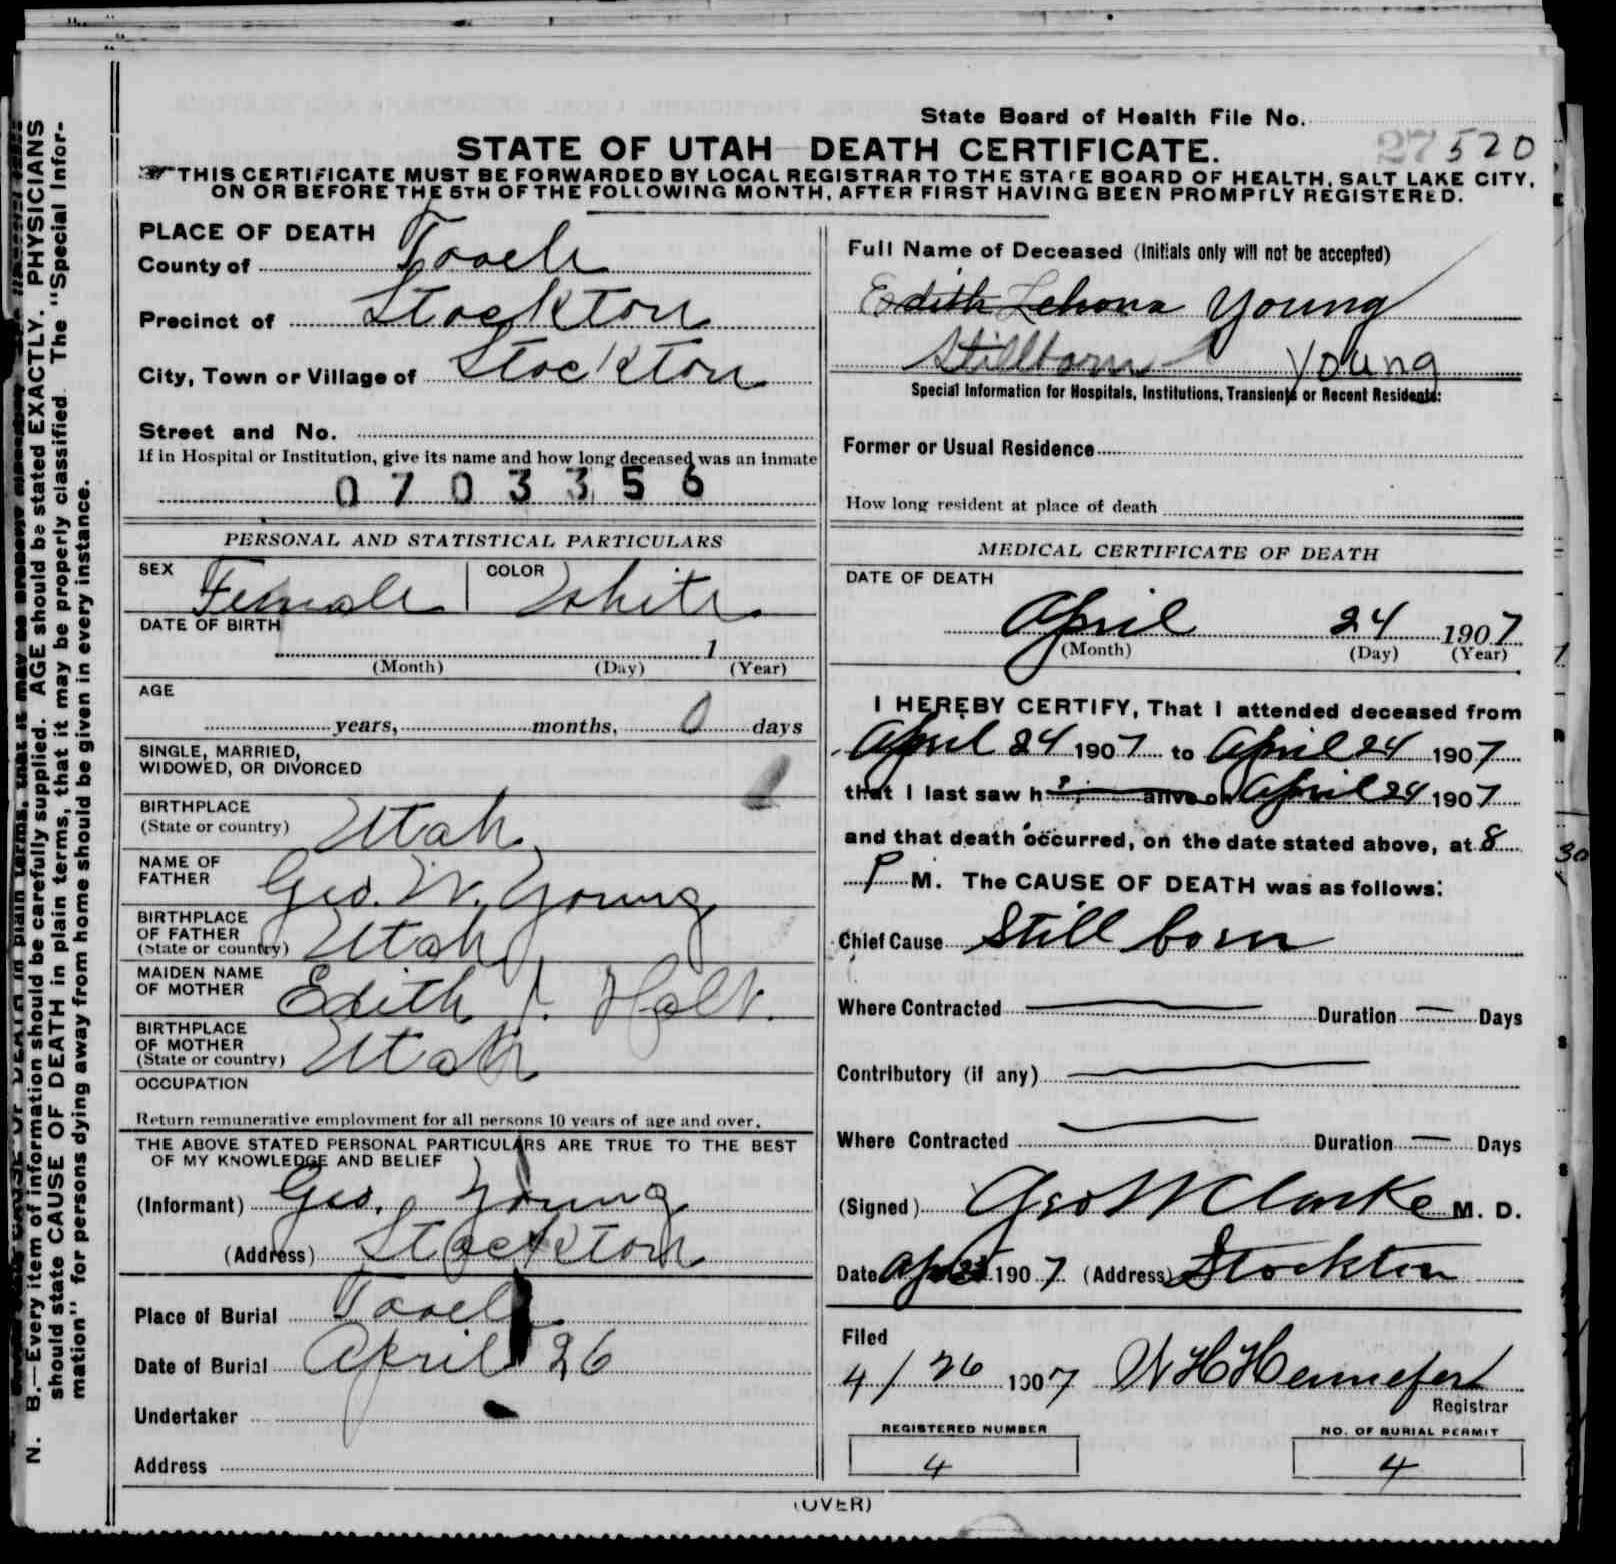 State Board of Health File No.
27 520
STATE OF UTAH DEATH CERTIFICATE.
THIS CERTIFICATE MUST BE FORWARDED BY LOCAL REGISTRAR TO THE STATE BOARD OF HEALTH, SALT LAKE CITY,
ON OR BEFORE THE 5TH OF THE FOLLOWING MONTH, AFTER FIRST HAVING BEEN PROMPTLY REGISTERED.
PLACE OF DEATH
County of Tooele
Precinct of Stockton
City, Town or Village of Stockton
Street and No.
If in Hospital or Institution, give its name and how long deceased was an inmate
0703356
PERSONAL AND STATISTICAL PARTICULARS
SEX Female COLOR White
DATE OF BIRTH
1
(Month) (Day) (Year)
AGE
years, months, 0 days
SINGLE, MARRIED,
WIDOWED, OR DIVORCED
BIRTHPLACE
(State or country) Utah
NAME OF
FATHER Geo. W. Young
BIRTHPLACE
OF FATHER
(State or country) Utah
MAIDEN NAME
OF MOTHER Edith
BIRTHPLACE
OF MOTHER
(State or country) Utah
OCCUPATION
Return remunerative employment for all persons 10 years of age and over.
THE ABOVE STATED PERSONAL PARTICULARS ARE TRUE TO THE BEST
OF MY KNOWLEDGE AND BELIEF
(Informant) Geo. Young
(Address) Stockton
Place of Burial Tooele
Date of Burial April 26
Undertaker
Address
Full Name of Deceased (Initials only will not be accepted)
Edith Young
Stillborn Young
Special Information for Hospitals, Institutions, Transients or Recent Residents:
Former or Usual Residence
How long resident at place of death
MEDICAL CERTIFICATE OF DEATH
DATE OF DEATH
April 24 1907
(Month) (Day) (Year)
I HEREBY CERTIFY, That I attended deceased from
April 24 1907 to April 24 1907
that I last saw h alive on April 24 1907
and that death occurred, on the date stated above, at 8 30
P M. The CAUSE OF DEATH was as follows:
Chief Cause Still born
Where Contracted Duration Days
Contributory (if any)
Where Contracted Duration Days
(Signed) Geo W Clarke M. D.
Date 1907 (Address) Stockton
Filed
4/26 1907 W H Hennefer
Registrar
REGISTERED NUMBER
4
NO. OF BURIAL PERMIT
4
(OVER)
N. B.—Every item of information should be carefully supplied. AGE should be stated EXACTLY. PHYSICIANS
should state CAUSE OF DEATH in plain terms, that it may be properly classified. The "Special Infor-
mation" for persons dying away from home should be given in every instance.